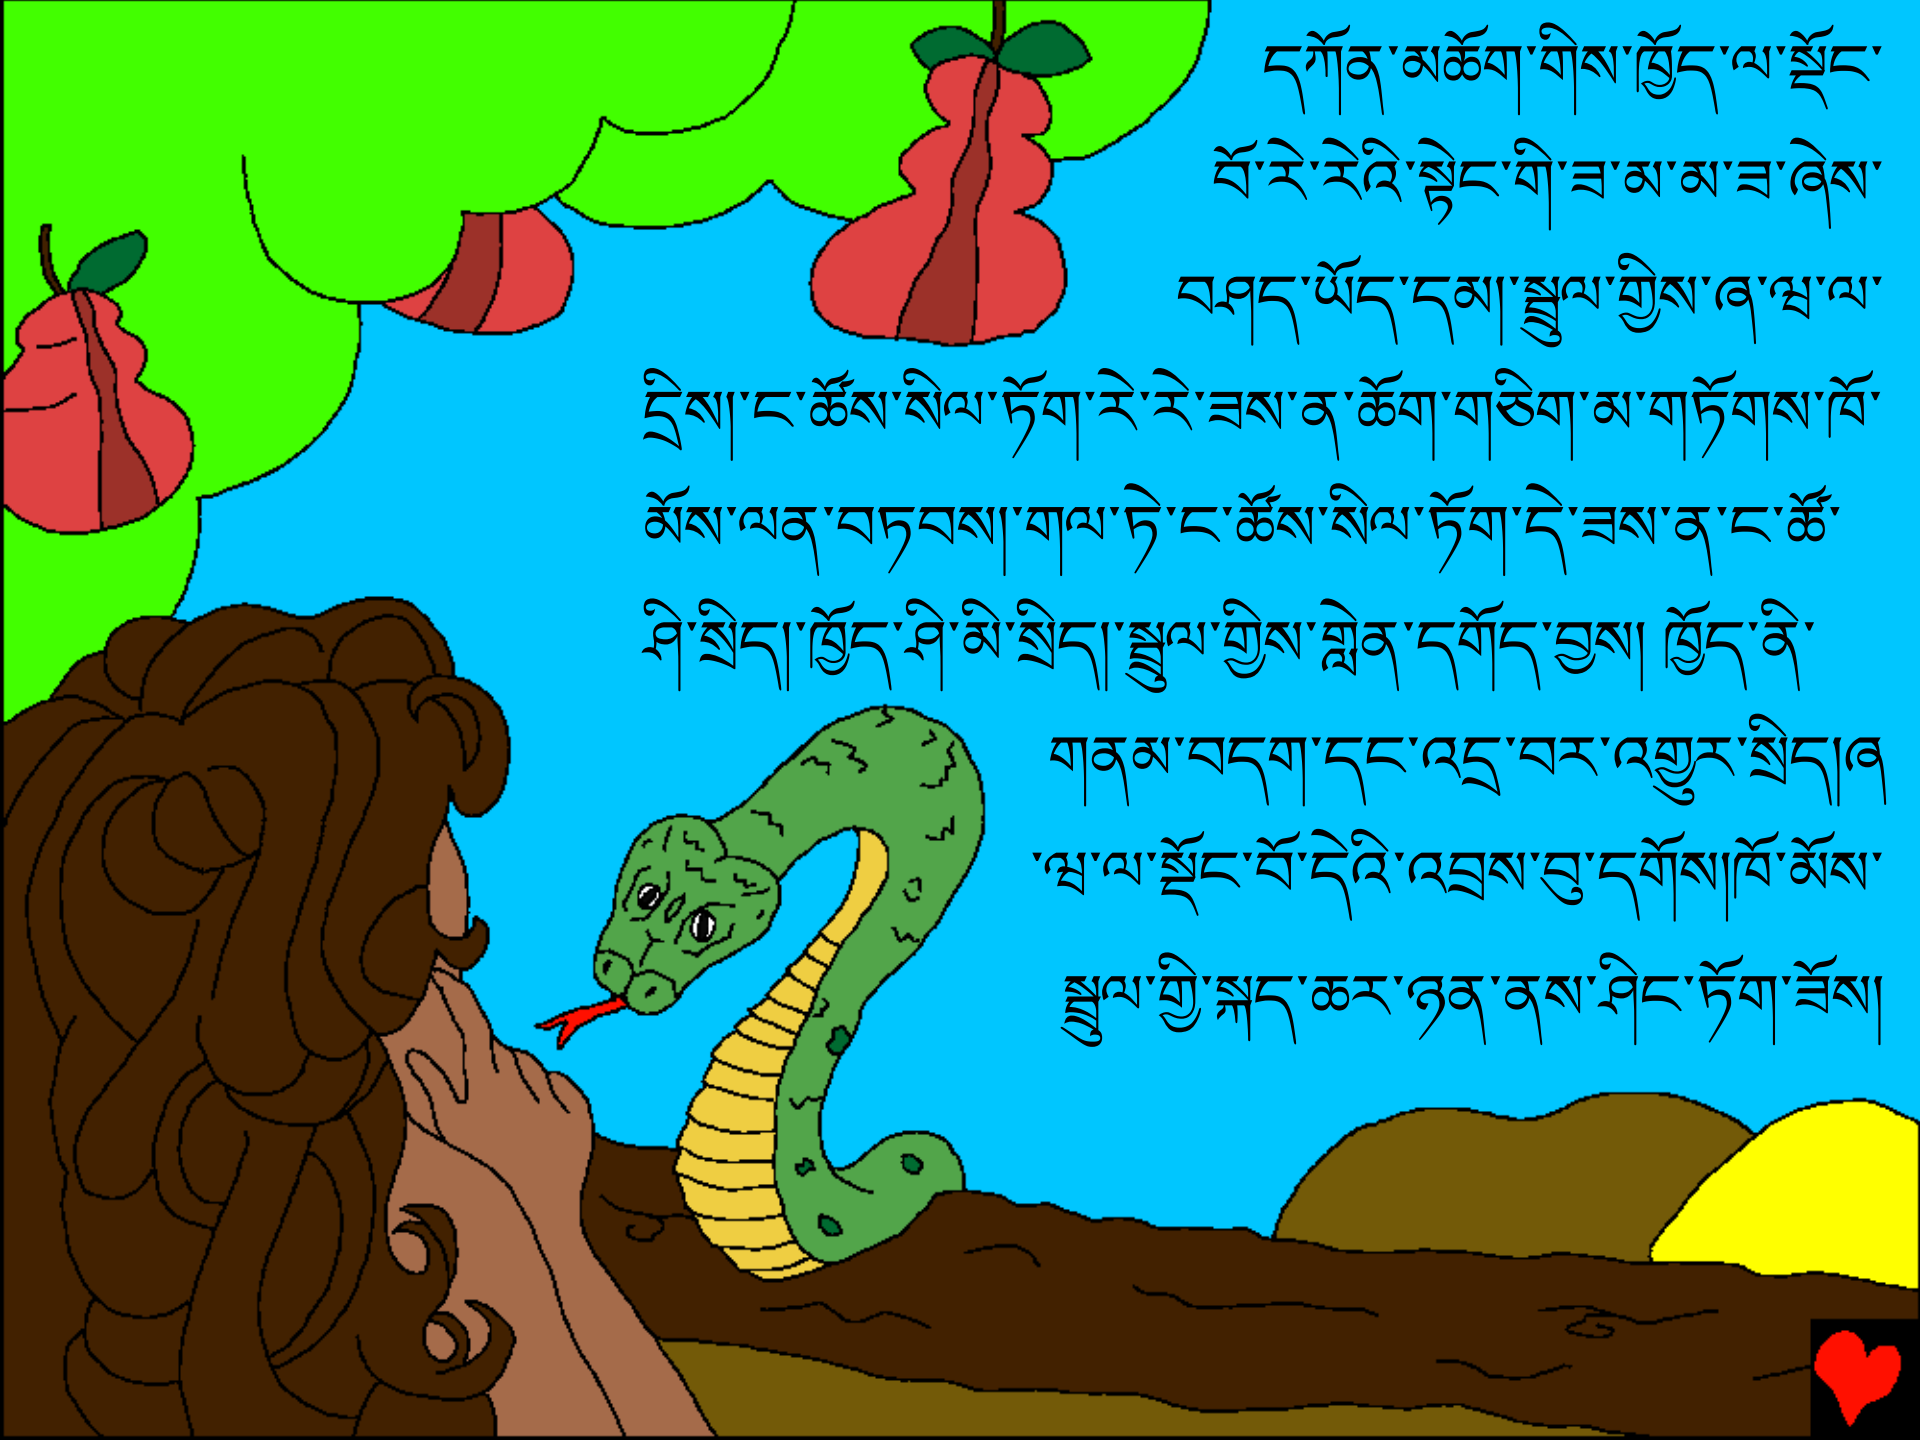 དཀོན་མཆོག་གིས་ཁྱོད་ལ་སྡོང་
བོ་རེ་རེའི་སྟེང་གི་ཟ་མ་མ་ཟ་ཞེས་
བཤད་ཡོད་དམ།་སྦྲུལ་གྱིས་ཞ་ཝ་ལ་
དྲིས།་ང་ཚོས་སིལ་ཏོག་རེ་རེ་ཟས་ན་ཆོག་གཅིག་མ་གཏོགས་ཁོ་
མོས་ལན་བཏབས།་གལ་ཏེ་ང་ཚོས་སིལ་ཏོག་དེ་ཟས་ན་ང་ཚོ་
ཤི་སྲིད།་ཁྱོད་ཤི་མི་སྲིད།་སྦྲུལ་གྱིས་གླེན་དགོད་བྱས། ཁྱོད་ནི་
གནམ་བདག་དང་འདྲ་བར་འགྱུར་སྲིད།ཞ
་ཝ་ལ་སྡོང་བོ་དེའི་འབྲས་བུ་དགོས།ཁོ་མོས་
སྦྲུལ་གྱི་སྐད་ཆར་ཉན་ནས་ཤིང་ཏོག་ཟོས།